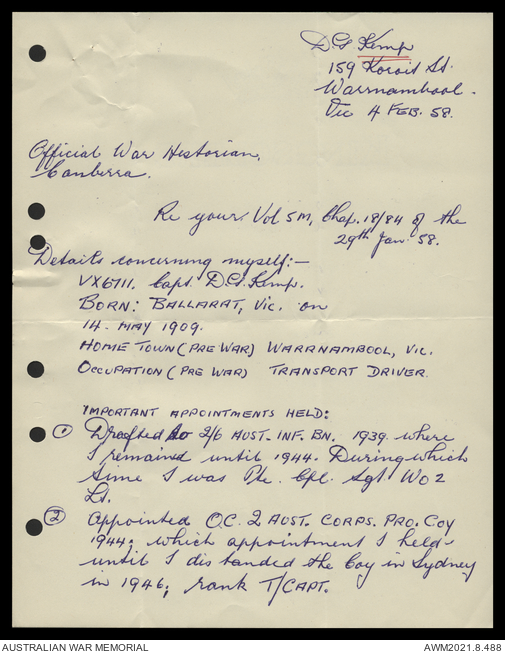 D G Kemp
159 Koroit St.
Warrnambool.
Vic 4 FEB. 58.
Official War Historian,
Canberra.
Re your Vol 5M, Chap. 18/84 of the
29th Jan 58.
Details concerning myself:-
VX6711. Capt. D.G. Kemp.
BORN: BALLARAT, VIC. on
14. MAY 1909.
HOME TOWN (PRE WAR) WARRNAMBOOL, VIC.
OCCUPATION (PRE WAR) TRANSPORT DRIVER.
IMPORTANT APPOINTMENTS HELD:
① Drafted to 2/6 AUST. INF. BN. 1939. where
I remained until 1944. During which
time I was Pte. Cpl. Sgt WO2
Lt.
② Appointed O.C. 2 AUST. CORPS. PRO. COY
1944; which appointment I held
until I disbanded the Coy in Sydney
in 1946; rank T/CAPT.
AUSTRALIAN WAR MEMORIAL
AWM2021.8.488